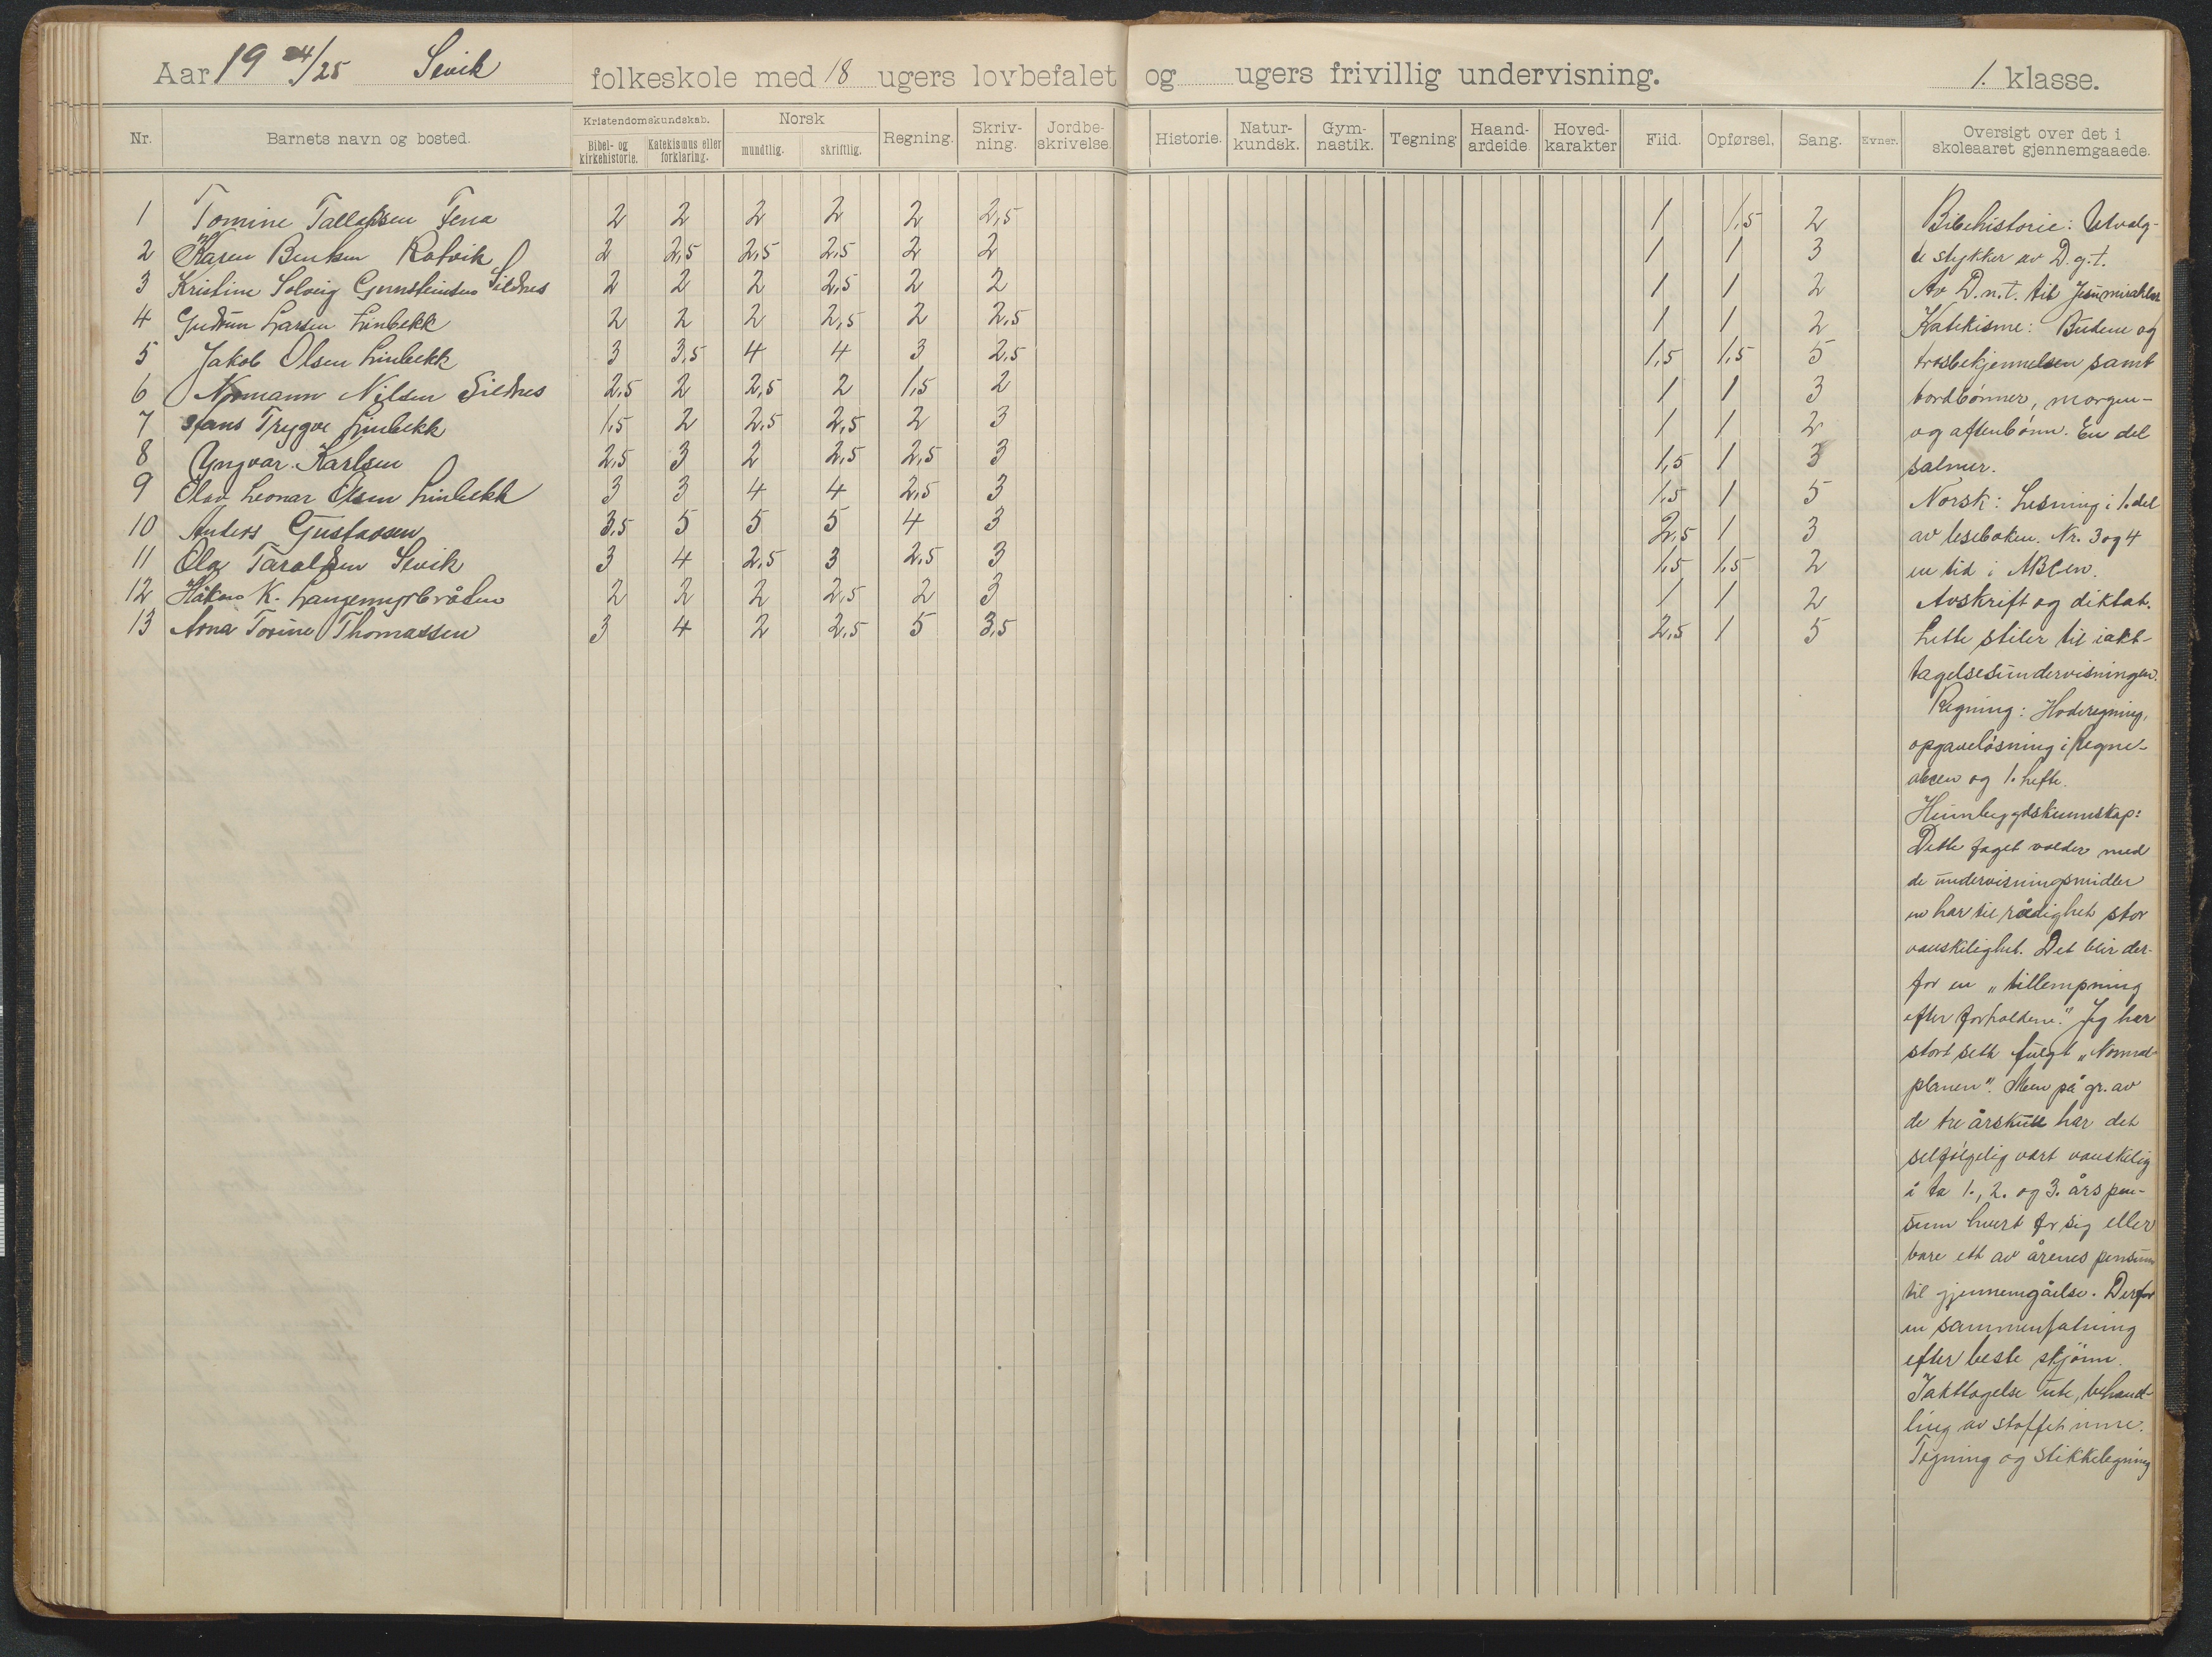 Aar 19 24/25 Sevik folkeskole med 18 ugers lovbefalet og ugers frivillig undervisning. 1. klasse.
Nr. Barnets navn og bosted. Kristendomskundskab. Bibel- og kirkehistorie. Katekismus eller forklaring. Norsk mundtlig. skriftlig. Regning. Skriv-ning. Jordbe-skrivelse. Historie. Natur-kundsk. Gym-nastik. Tegning Haand-ardeide Hoved-karakter Flid. Opførsel. Sang. Evner. Oversigt over det i skoleaaret gjennemgaaede.
1 Tomine Tallaksen Fena 2 2 2 2 2 2,5 1 1,5 2
2 Karen Bentsen Ratvik 2 2,5 2,5 2,5 2 2 1 1 3
3 Kristine Solveig Gunsteinsen Sildnes 2 2 2 2,5 2 2 1 1 2
4 Gudrun Larsen Linbekk 2 2 2 2,5 2 2,5 1 1 2
5 Jakob Olsen Linbekk 3 3,5 4 4 3 2,5 1,5 1,5 5
6 Normann Nilsen Sildnes 2,5 2 2,5 2 1,5 2 1 1 3
7 Hans Trygve Linbekk 1,5 2 2,5 2,5 2 3 1 1 2
8 Yngvar Karlsen 2,5 3 2 2,5 2,5 3 1,5 1 3
9 Olav Leonar Olsen Linbekk 3 3 4 4 2,5 3 1,5 1 5
10 Anders Gustavsen 3,5 5 5 5 4 3 2,5 1 3
11 Ola Taraldsen Sevik 3 4 2,5 3 2,5 3 1,5 1,5 2
12 Håkon K. Langemyrbråten 2 2 2 2,5 2 3 1 1 2
13 Anna Torine Thomassen 3 4 2 2,5 5 3,5 2,5 1 5
Bibelhistorie: Utvalg-
te stykker av D.g.t.
Av D.n.t. til Jesu mirakler
Katekisme: Budene og
trosbekjennelsen samt
bordbønner, morgen-
og aftenbønn. En del
salmer.
Norsk: Lesning i 1. del
av leseboken. Nr. 3 og 4
en tid i ABCen.
Avskrift og diktat.
Lette stiler til iakt-
tagelsesundervisningen.
Regning: Hoderegning,
opgaveløsning i Regne-
abcen og 1. hefte.
Heimbygdskunnskap:
Dette faget volder med
de undervisningsmidler
en har til rådighet stor
vanskelighet. Det blir der-
for en "tillempning
efter forholdene." Jeg har
stort sett fulgt "Normal-
planen". Men på gr. av
de tre årskull har det
selfølgelig vært vanskelig
å ta 1., 2. og 3. års pen-
sum hvert for sig eller
bare ett av årenes pensum
til gjennemgåelse. Derfor
en sammenfatning
efter beste skjønn.
Iakttagelse ute, behand-
ling av stoffet inne.
Tegning og stikkelegning